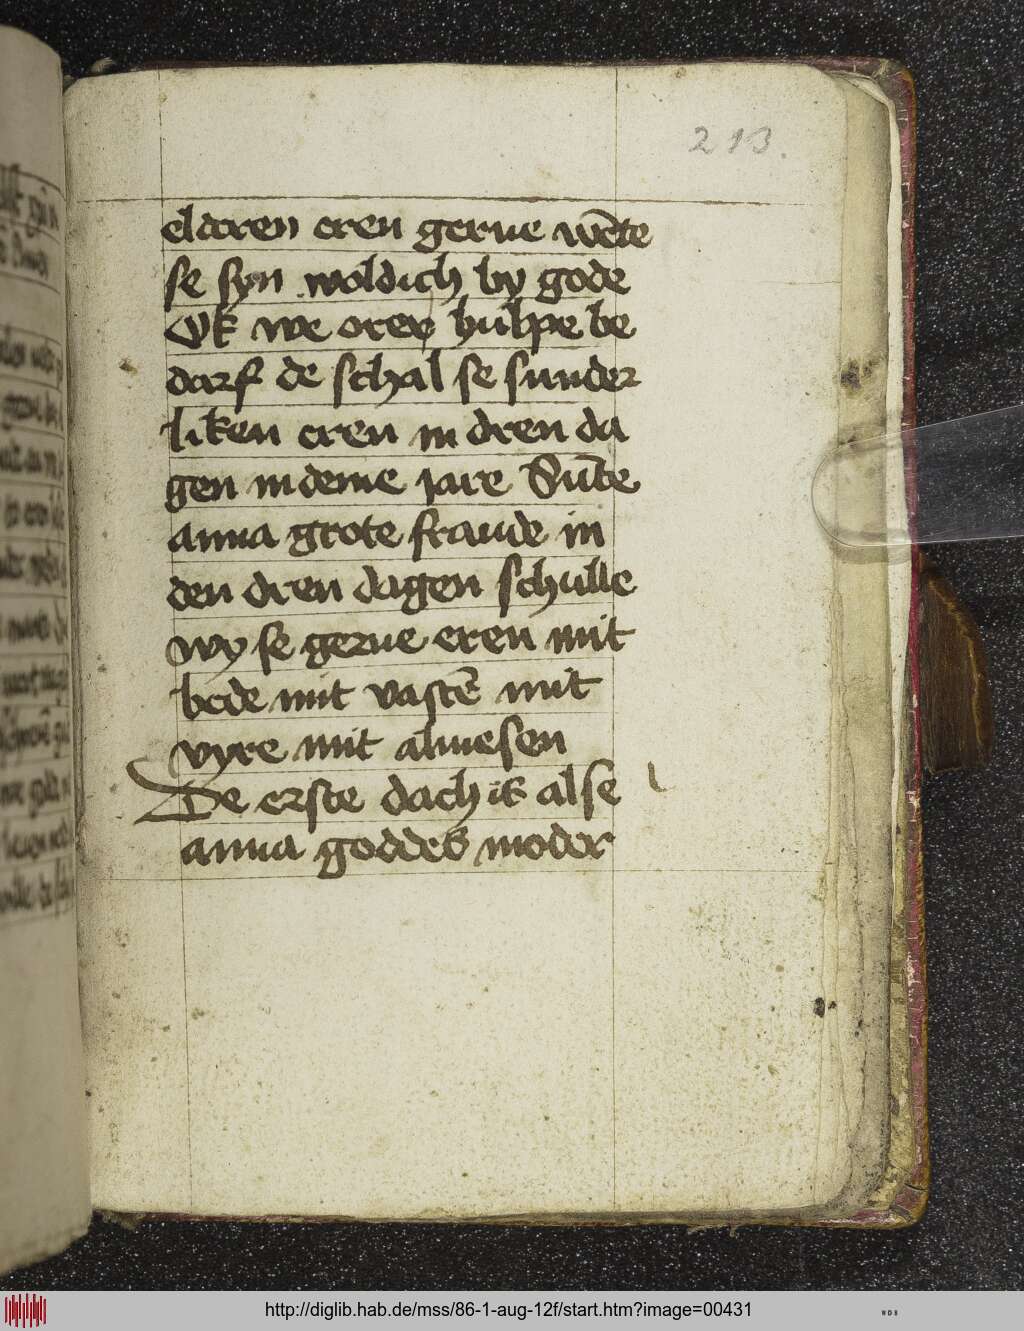 213.
eldoren eren gerne wēte
se syn woldich by gode
Ok we orer hulpe be
darf de schal se sunder
liken eren in dren da
gen in deme iare Sūte
anna grote fraude in
den dren dagen schulle
wy se gerne eren mit
bede mit vastē mit
vyre mit almesen
De erste dach is alse
anna goddes moder
http://diglib.hab.de/mss/86-1-aug-12f/start.htm?image=00431